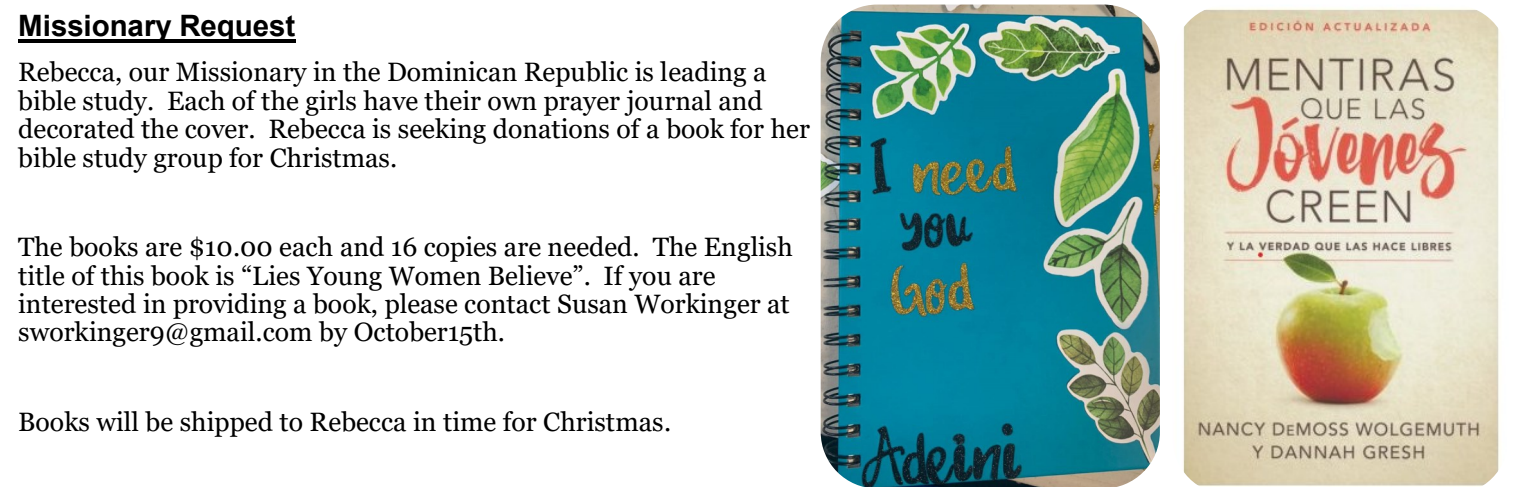 Missionary Request
Rebecca, our Missionary in the Dominican Republic is leading a
bible study.  Each of the girls have their own prayer journal and
decorated the cover.  Rebecca is seeking donations of a book for her
bible study group for Christmas.
The books are $10.00 each and 16 copies are needed.  The English
title of this book is “Lies Young Women Believe”.  If you are
interested in providing a book, please contact Susan Workinger at
sworkinger9@gmail.com by October15th.
Books will be shipped to Rebecca in time for Christmas.
I need
you
God
Adeini
EDICIÓN ACTUALIZADA
MENTIRAS
QUE LAS
Jóvenes
CREEN
Y LA VERDAD QUE LAS HACE LIBRES
NANCY DEMOSS WOLGEMUTH
Y DANNAH GRESH